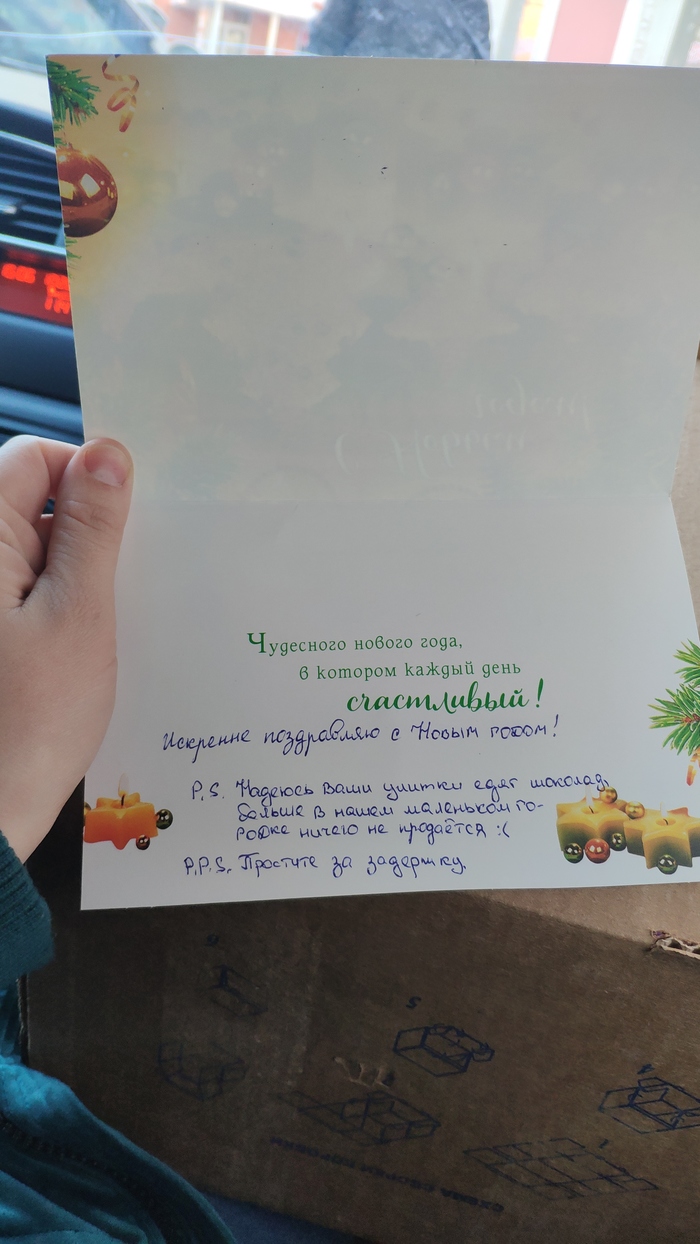 С Новым
годом
Чудесного нового года,
в котором каждый день
счастливый!
Искренне поздравляю с Новым годом!
P.S. Надеюсь Ваши улитки едят шоколад,
больше в нашем маленьком го-
родке ничего не продаётся :(
P.P.S. Простите за задержку.
СХЕМА СБОРКИ КОРОБКИ